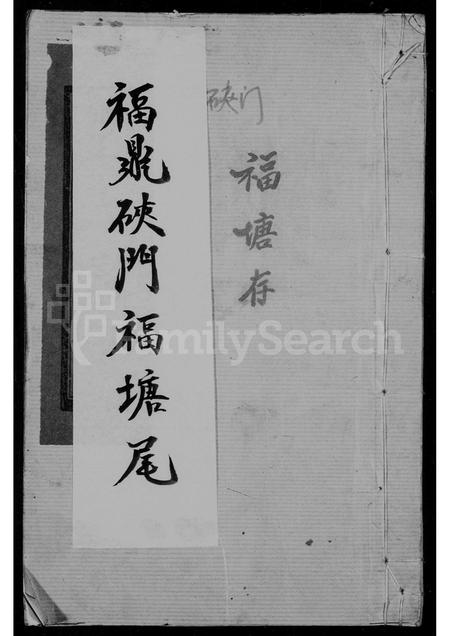 硤门
福塘存
福鼎硤門福塘尾
FamilySearch